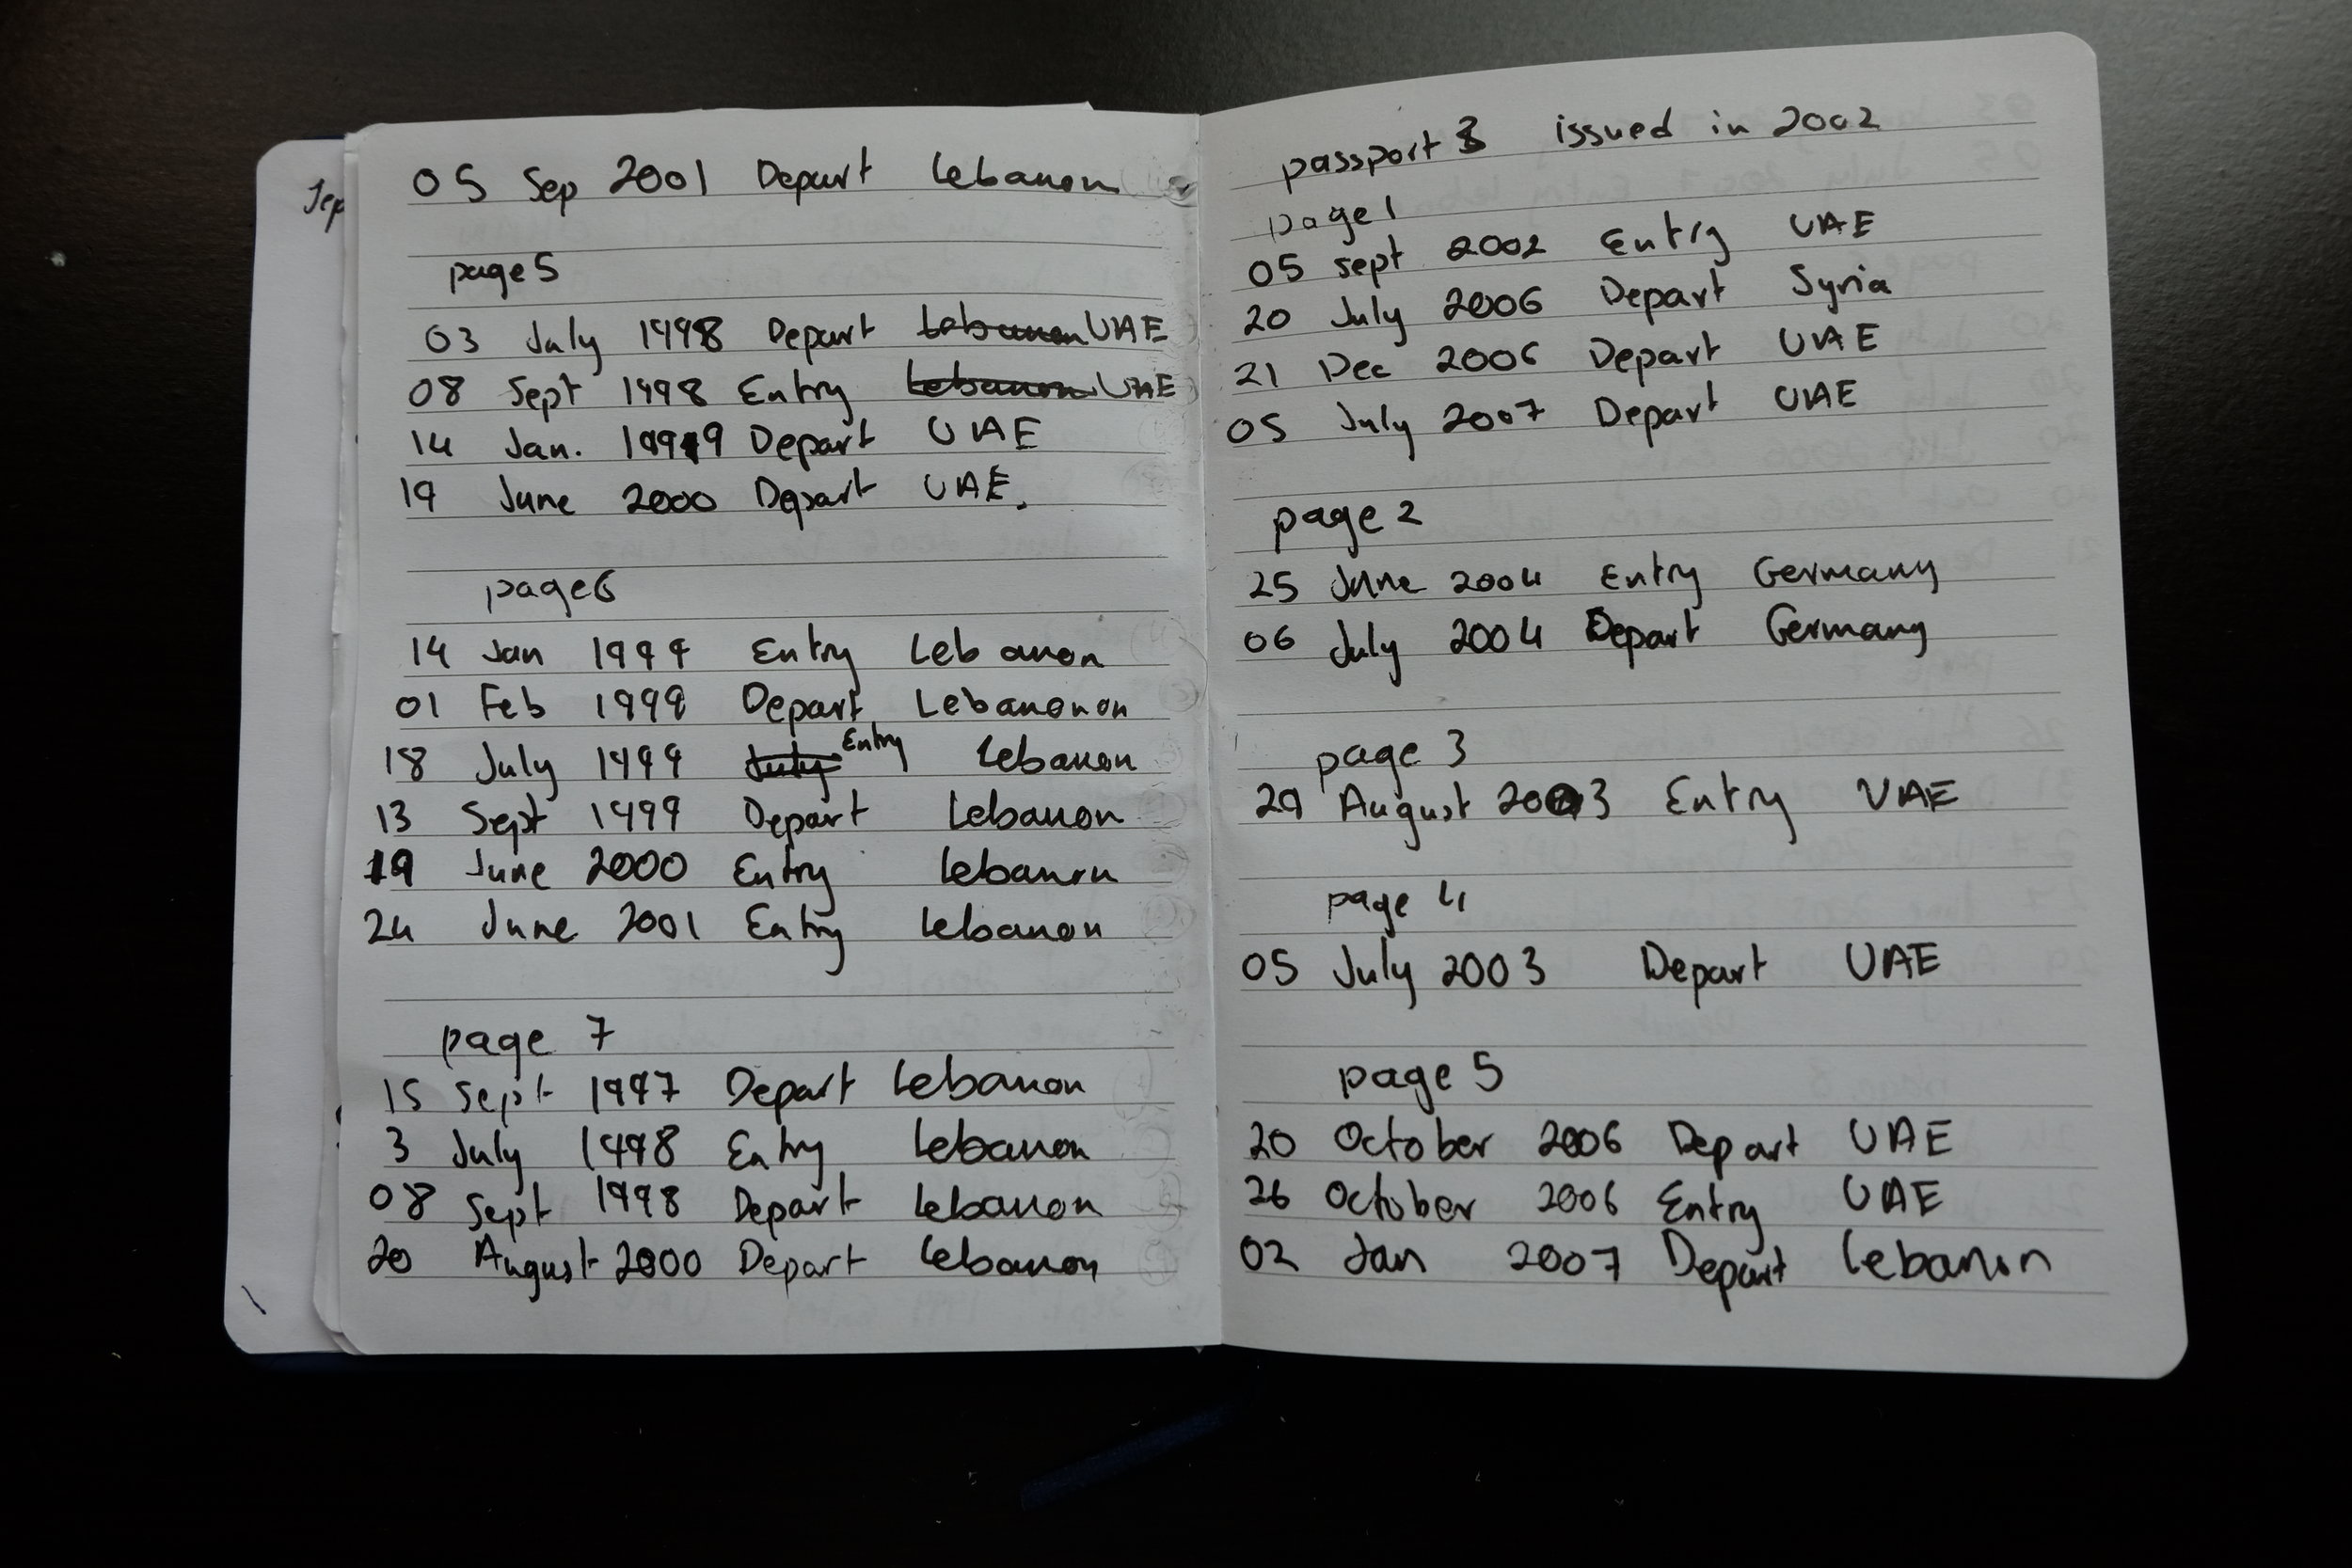 Sep
05 Sep 2001 Depart Lebanon
page 5
03 July 1998 Depart Lebanon UAE
08 Sept 1998 Entry Lebanon UAE
14 Jan. 1999 Depart UAE
19 June 2000 Depart UAE.
page 6
14 Jan 1999 Entry Lebanon
01 Feb 1999 Depart Lebanonon
18 July 1999 July Entry Lebanon
13 Sept 1999 Depart Lebanon
19 June 2000 Entry Lebanon
24 June 2001 Entry Lebanon
page 7
15 Sept 1997 Depart Lebanon
3 July 1998 Entry Lebanon
08 Sept 1998 Depart Lebanon
20 August 2000 Depart Lebanon
passport 3 issued in 2002
page 1
05 sept 2002 Entry UAE
20 July 2006 Depart Syria
21 Dec 2006 Depart UAE
05 July 2007 Depart UAE
page 2
25 June 2004 Entry Germany
06 July 2004 Depart Germany
page 3
29 August 2003 Entry UAE
page 4
05 July 2003 Depart UAE
page 5
20 October 2006 Depart UAE
26 October 2006 Entry UAE
02 Jan 2007 Depart Lebanon